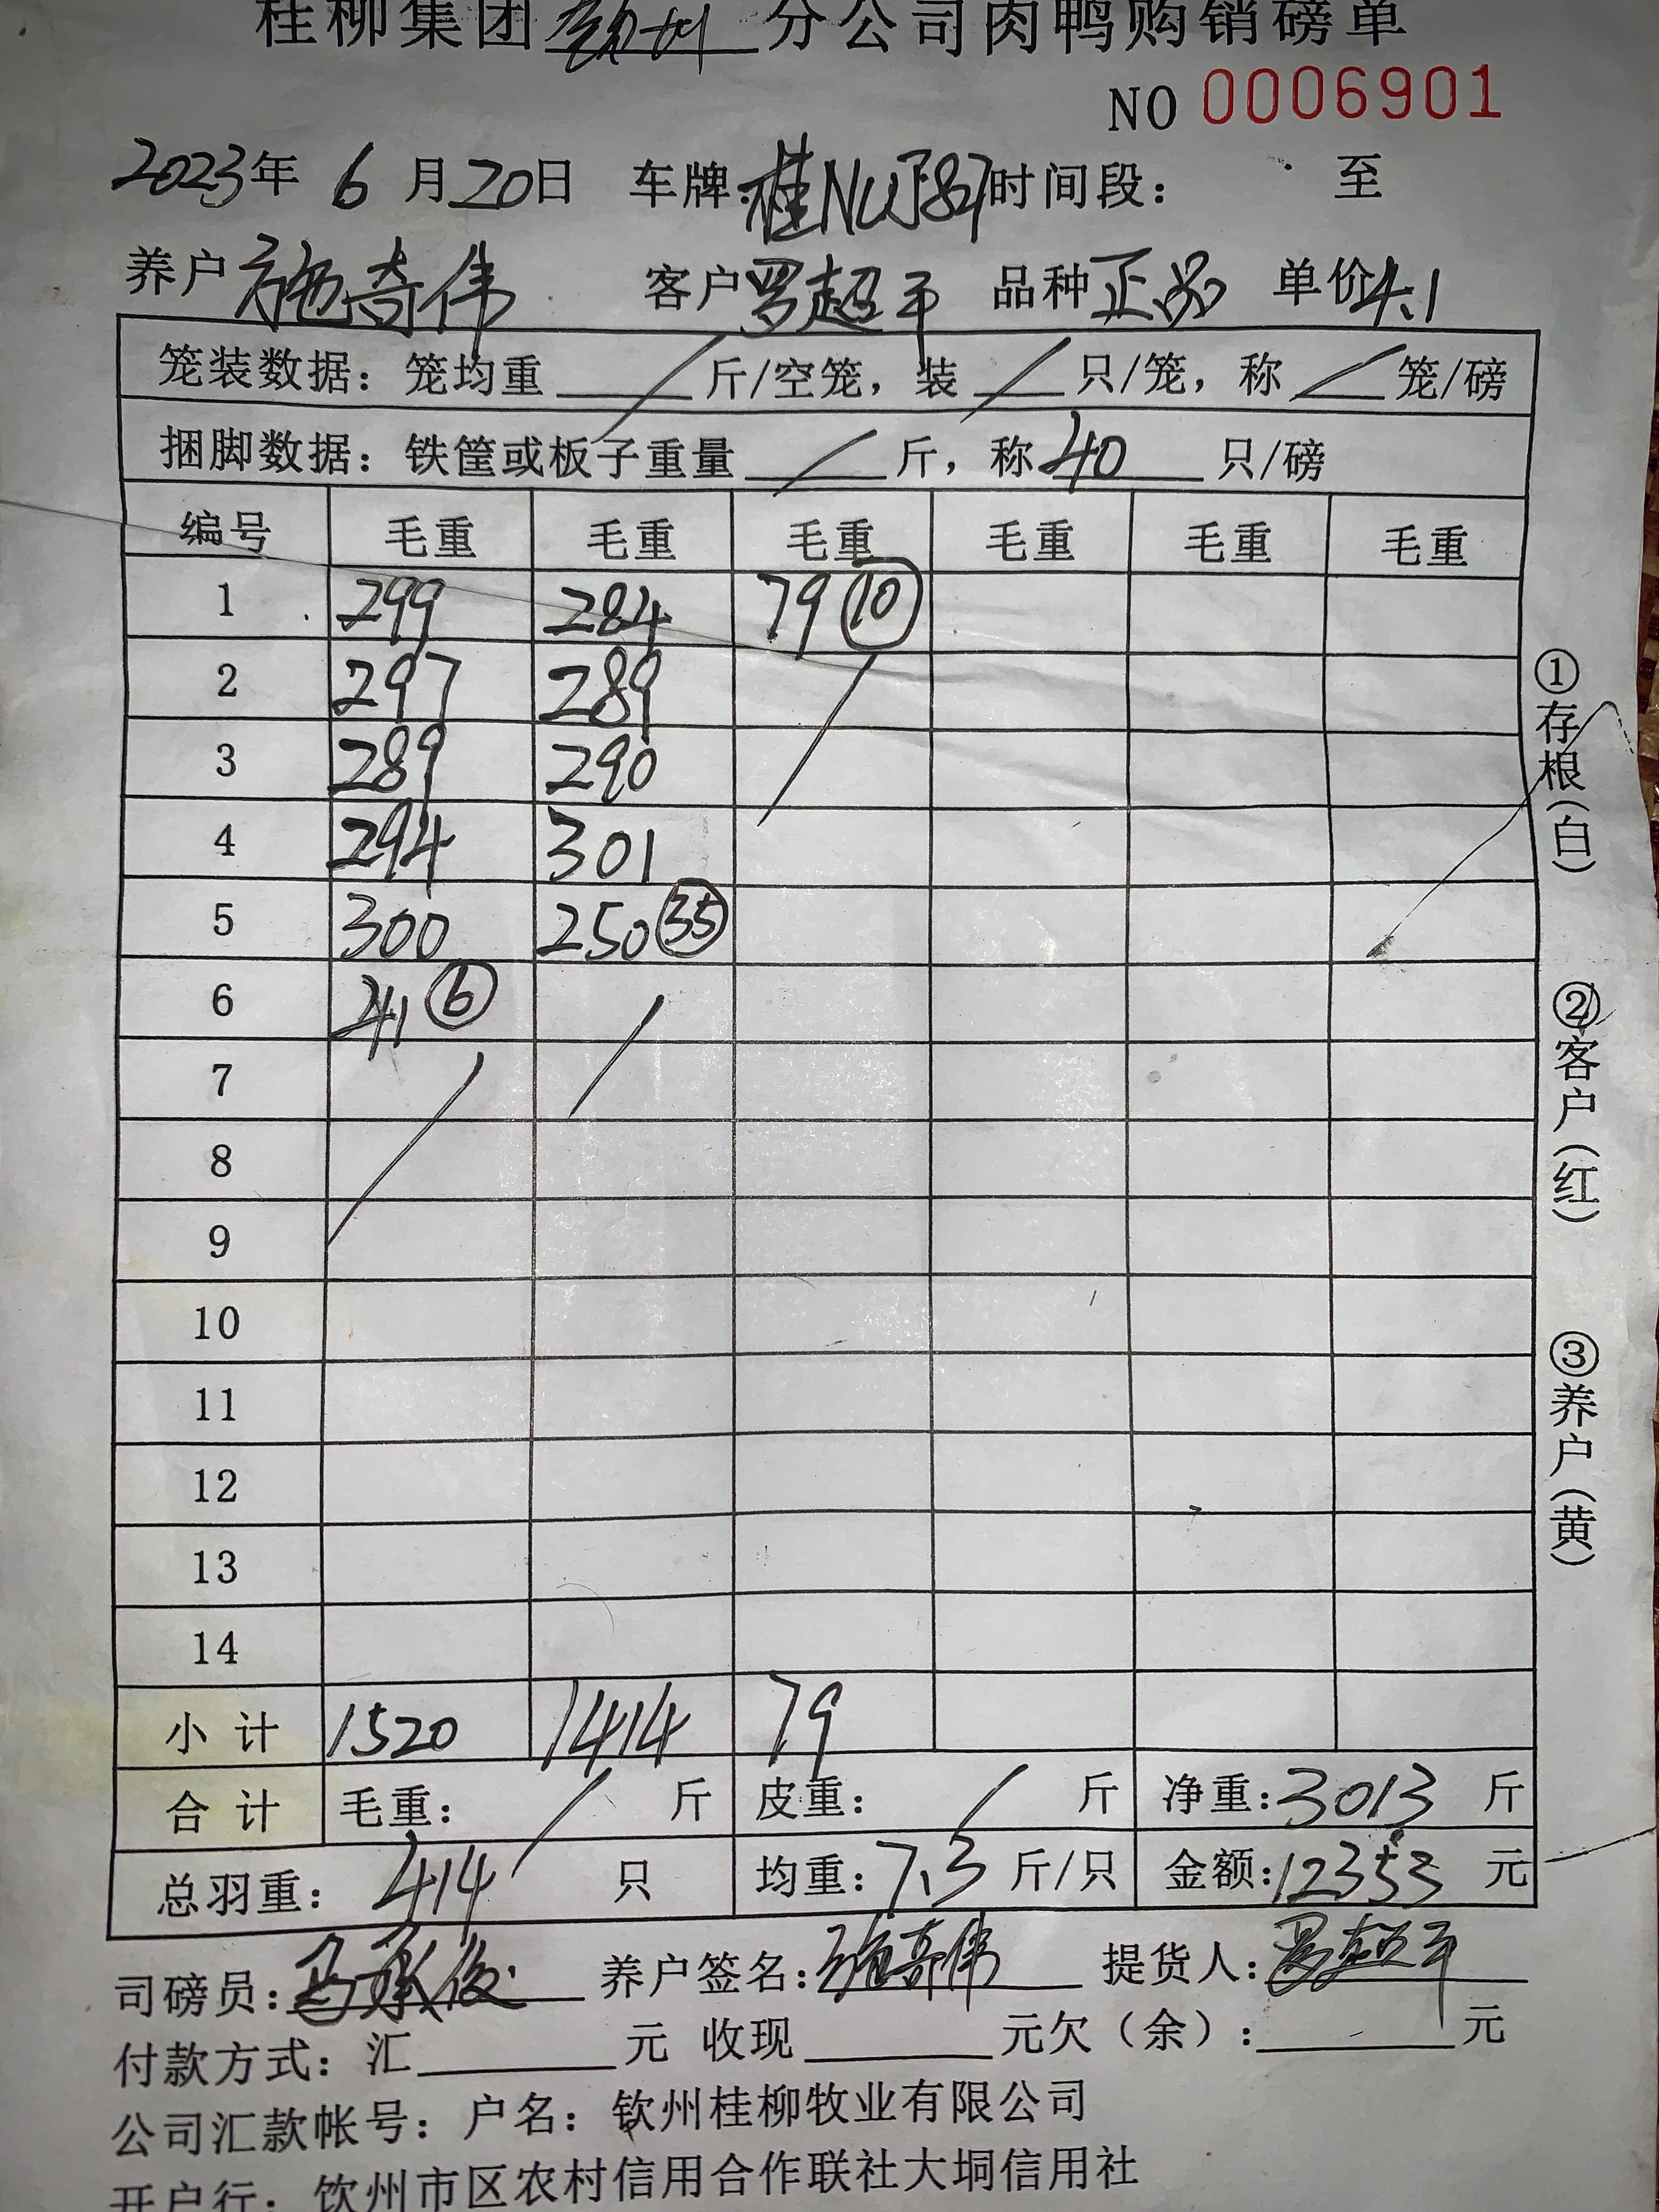 桂柳集团钦州分公司肉鸭购销磅单
NO 0006901
2023年 6月20日 车牌: 时间段: 至
养户施奇伟 客户罗超平 品种正品 单价4.1
笼装数据: 笼均重 / 斤/空笼, 装 / 只/笼, 称 / 笼/磅
捆脚数据: 铁筐或板子重量 / 斤, 称40 只/磅
编号 毛重 毛重 毛重 毛重 毛重 毛重
1 299 284 79 ⑩
2 297 289
3 289 290
4 294 301
5 300 250 ㉟
6 41 ⑥
7
8
9
10
11
12
13
14
小计 1520 1414 79
合计 毛重: / 斤 皮重: / 斤 净重:3013 斤
总羽重: 414 只 均重:7.3 斤/只 金额:12353 元
司磅员:马承俊 养户签名:施奇伟 提货人:罗超平
付款方式: 汇 元 收现 元欠(余): 元
公司汇款帐号: 户名: 钦州桂柳牧业有限公司
开户行: 钦州市区农村信用合作联社大垌信用社
①存根(白)
②客户(红)
③养户(黄)